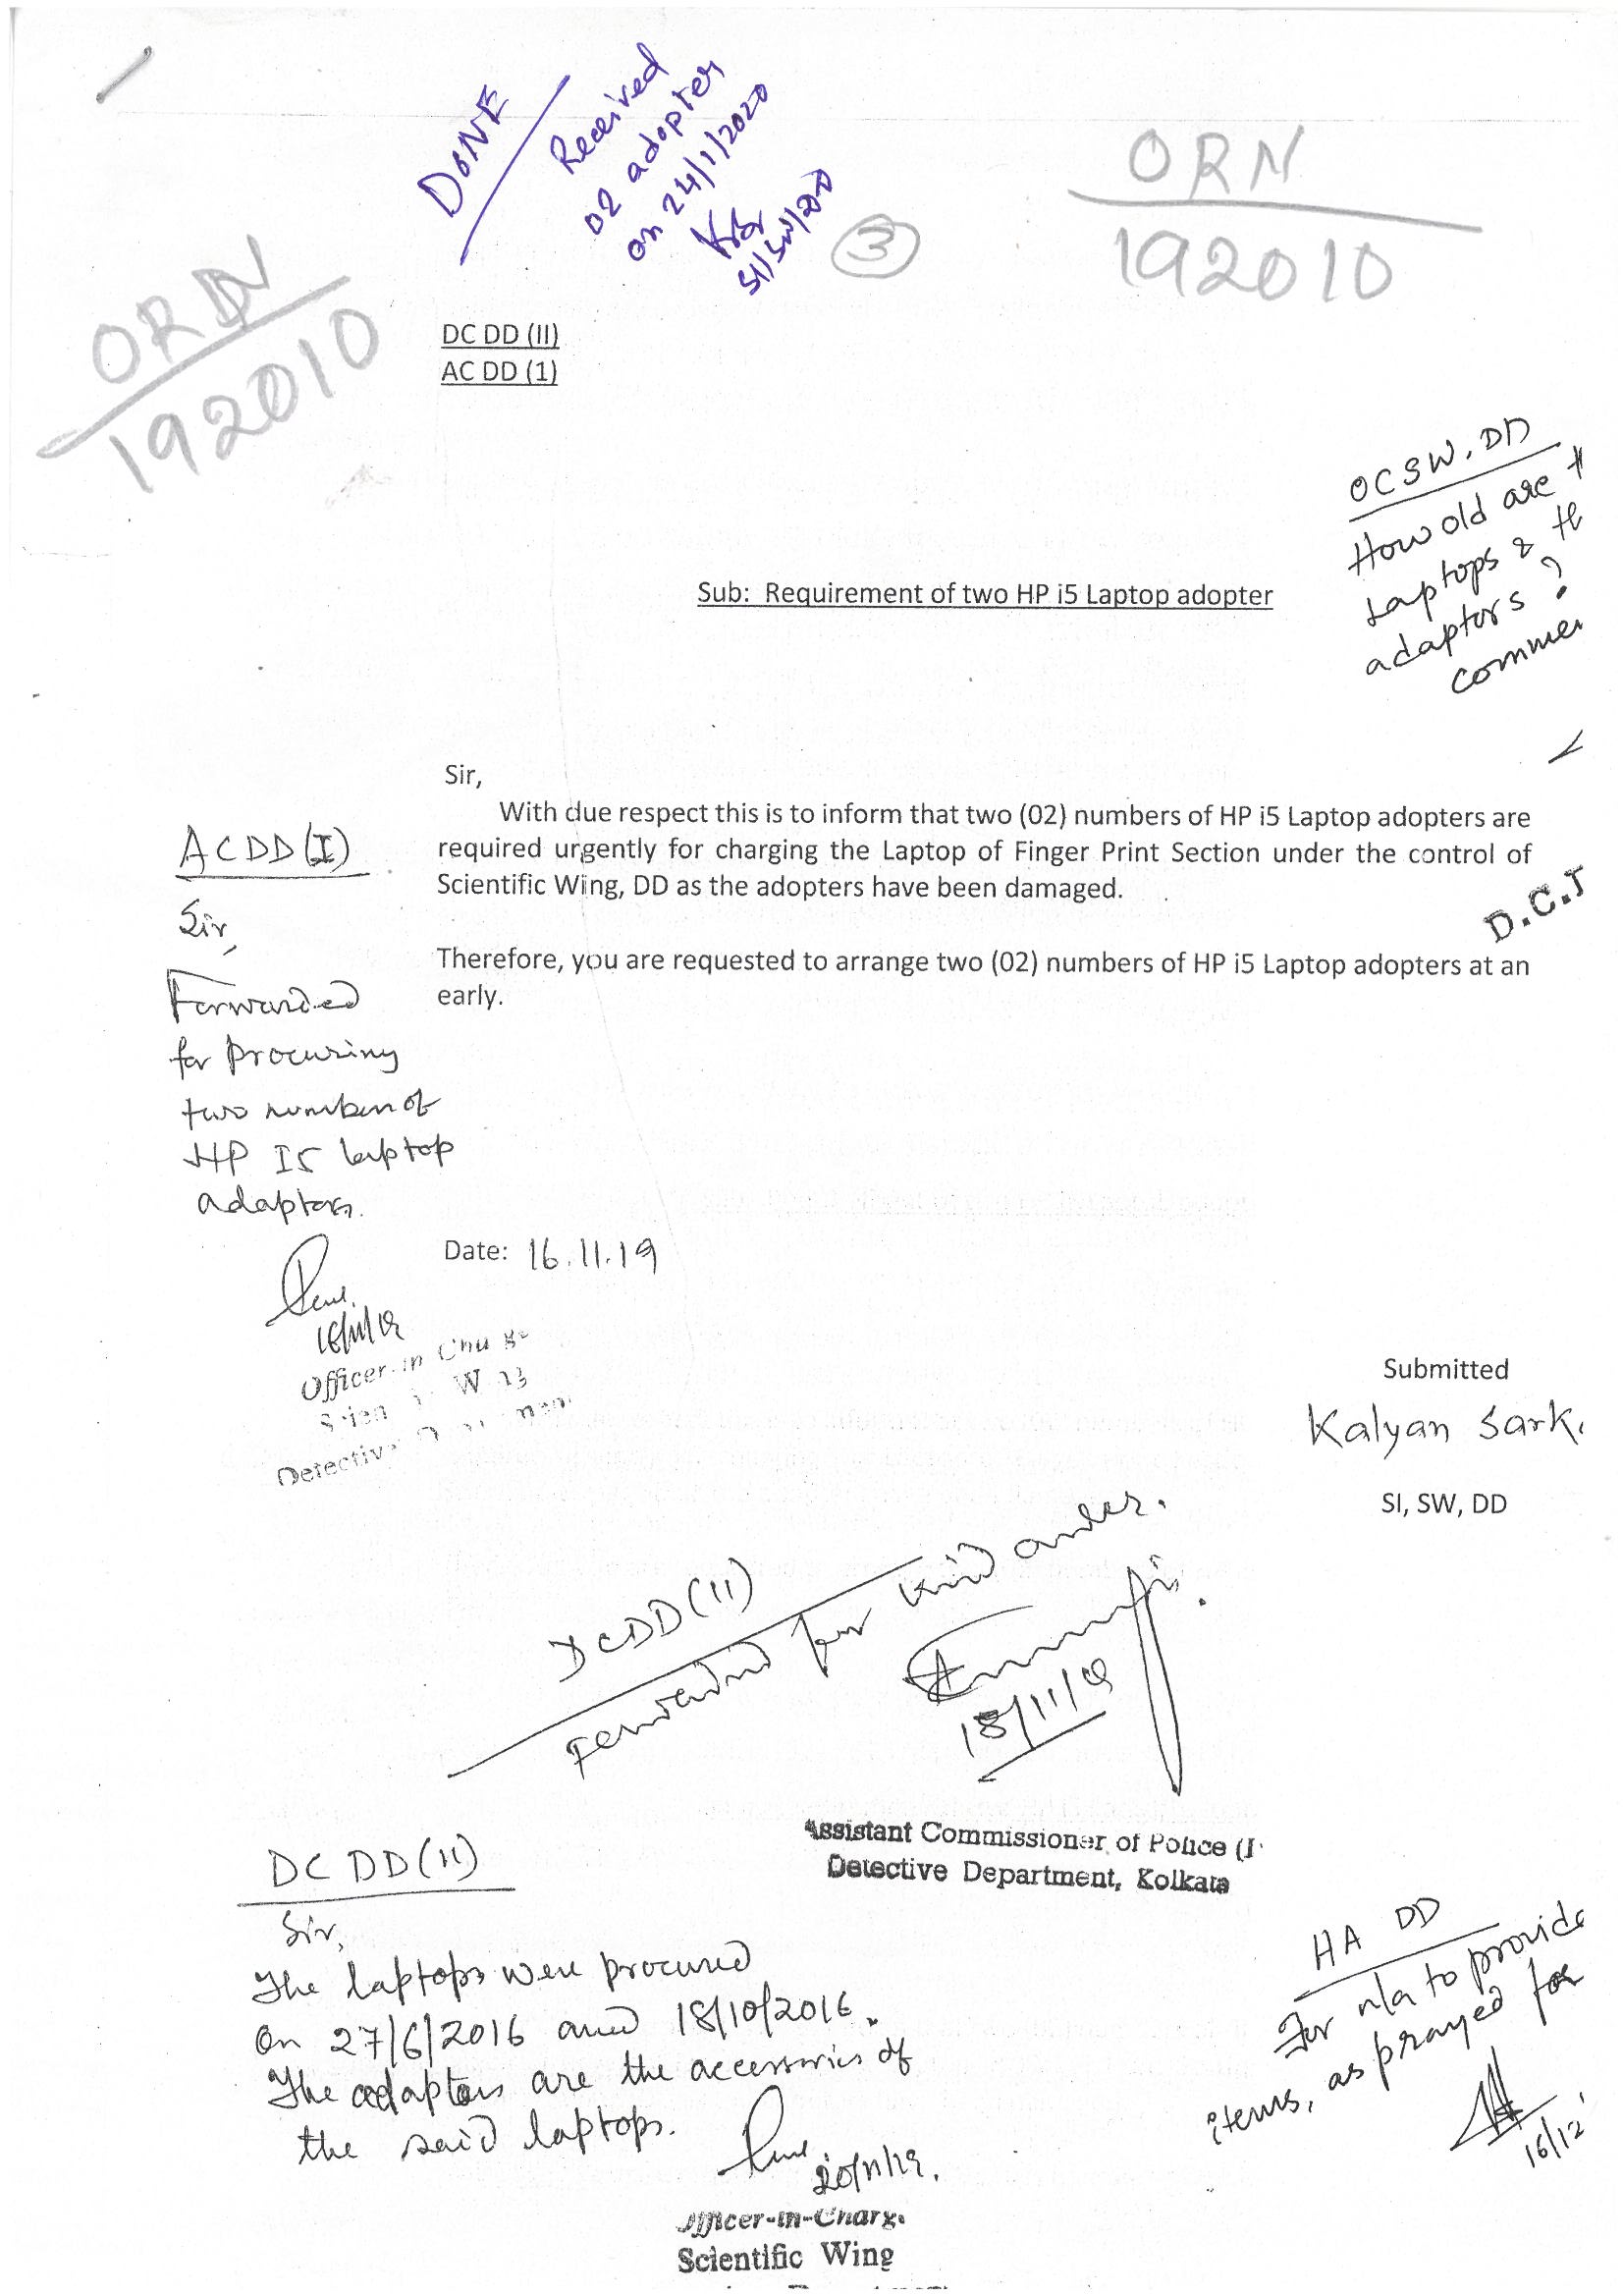 DONE
Received
02 adopter
on 24/1/2020
SI/SW/DD
3
ORN
192010
ORN
192010
DC DD (II)
AC DD (1)
OCSW, DD
How old are
Laptops &
adaptors ?
Sub: Requirement of two HP i5 Laptop adopter
Sir,
With due respect this is to inform that two (02) numbers of HP i5 Laptop adopters are
required urgently for charging the Laptop of Finger Print Section under the control of
Scientific Wing, DD as the adopters have been damaged.
D.C.
Therefore, you are requested to arrange two (02) numbers of HP i5 Laptop adopters at an
early.
ACDD(I)
Sir,
Forwarded
for procuring
two number of
HP I5 laptop
adaptors.
16/11/19
Officer-in
Detective
Date: 16.11.19
Submitted
Kalyan
SI, SW, DD
DCDD(II)
Forwarded for kind order.
18/11/19
Assistant Commissioner of Police
Detective Department, Kolkata
DC DD(II)
Sir,
The laptops were procured
on 27/6/2016 and 18/10/2016.
The adaptors are the accessories of
the said laptops.
20/11/19.
Officer-in-Charge
Scientific Wing
HA DD
For n/a to provide
items, as prayed for
16/12